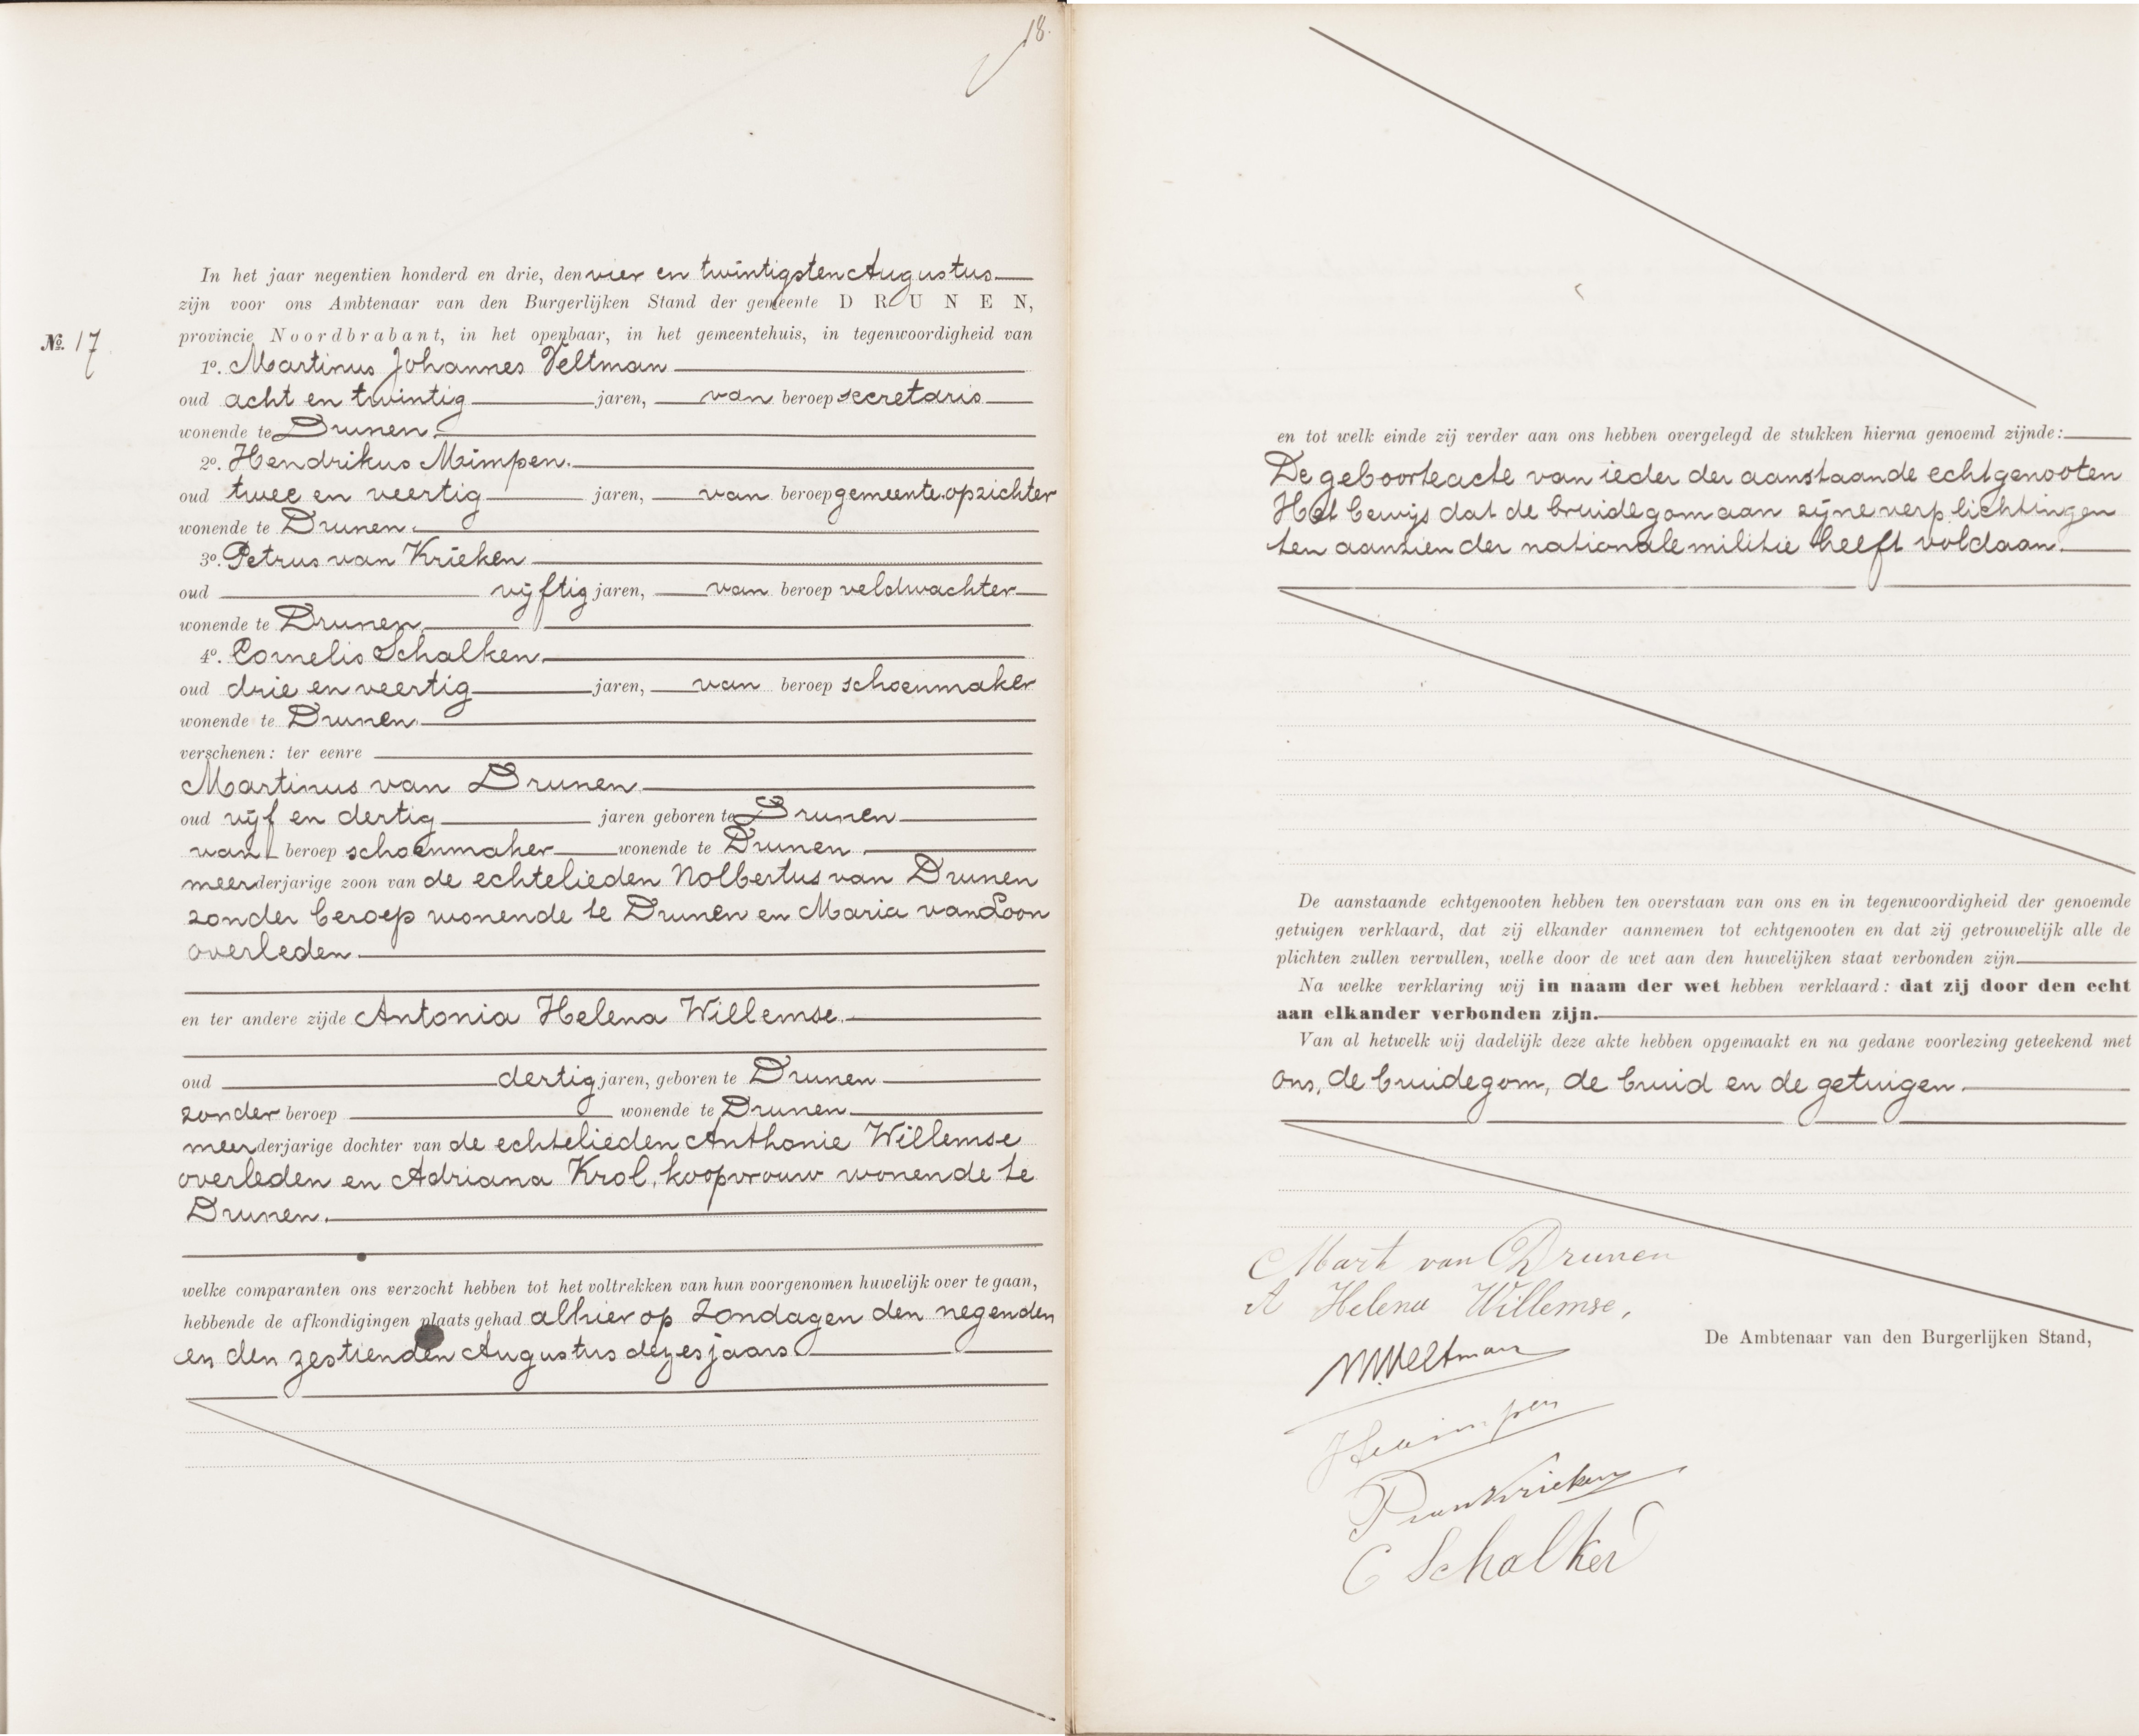 18.
In het jaar negentien honderd en drie, den vier en twintigsten Augustus
zijn voor ons Ambtenaar van den Burgerlijken Stand der gemeente DRUNEN,
No. 17
provincie Noordbrabant, in het openbaar, in het gemeentehuis, in tegenwoordigheid van
1o. Martinus Johannes Veltman
oud acht en twintig jaren, van beroep secretaris
wonende te Drunen.
2o. Hendrikus Mimpen.
oud twee en veertig jaren, van beroep gemeente.opzichter
wonende te Drunen.
3o. Petrus van Krieken
oud vijftig jaren, van beroep veldwachter
wonende te Drunen.
4o. Cornelis Schalken
oud drie en veertig jaren, van beroep schoenmaker
wonende te Drunen.
verschenen: ter eenre
Martinus van Drunen
oud vijf en dertig jaren geboren te Drunen
van beroep schoenmaker wonende te Drunen
meerderjarige zoon van de echtelieden Nolbertus van Drunen
zonder beroep wonende te Drunen en Maria van Loon
overleden
en ter andere zijde Antonia Helena Willemse.
oud dertig jaren, geboren te Drunen
zonder beroep wonende te Drunen
meerderjarige dochter van de echtelieden Anthonie Willemse
overleden en Adriana Krol, koopvrouw wonende te
Drunen.
welke comparanten ons verzocht hebben tot het voltrekken van hun voorgenomen huwelijk over te gaan,
hebbende de afkondigingen plaats gehad alhier op Zondagen den negenden
en den zestienden Augustus dezes jaars
en tot welk einde zij verder aan ons hebben overgelegd de stukken hierna genoemd zijnde:
De geboorteacte van ieder der aanstaande echtgenooten
Het bewijs dat de bruidegom aan zijne verplichtingen
ten aanzien der nationale militie heeft voldaan.
De aanstaande echtgenooten hebben ten overstaan van ons en in tegenwoordigheid der genoemde
getuigen verklaard, dat zij elkander aannemen tot echtgenooten en dat zij getrouwelijk alle de
plichten zullen vervullen, welke door de wet aan den huwelijken staat verbonden zijn.
Na welke verklaring wij in naam der wet hebben verklaard: dat zij door den echt
aan elkander verbonden zijn.
Van al hetwelk wij dadelijk deze akte hebben opgemaakt en na gedane voorlezing geteekend met
ons, de bruidegom, de bruid en de getuigen
Mart van Drunen
A Helena Willemse,
De Ambtenaar van den Burgerlijken Stand,
MJVeltman
HMimpen
PvanKrieken
C Schalken